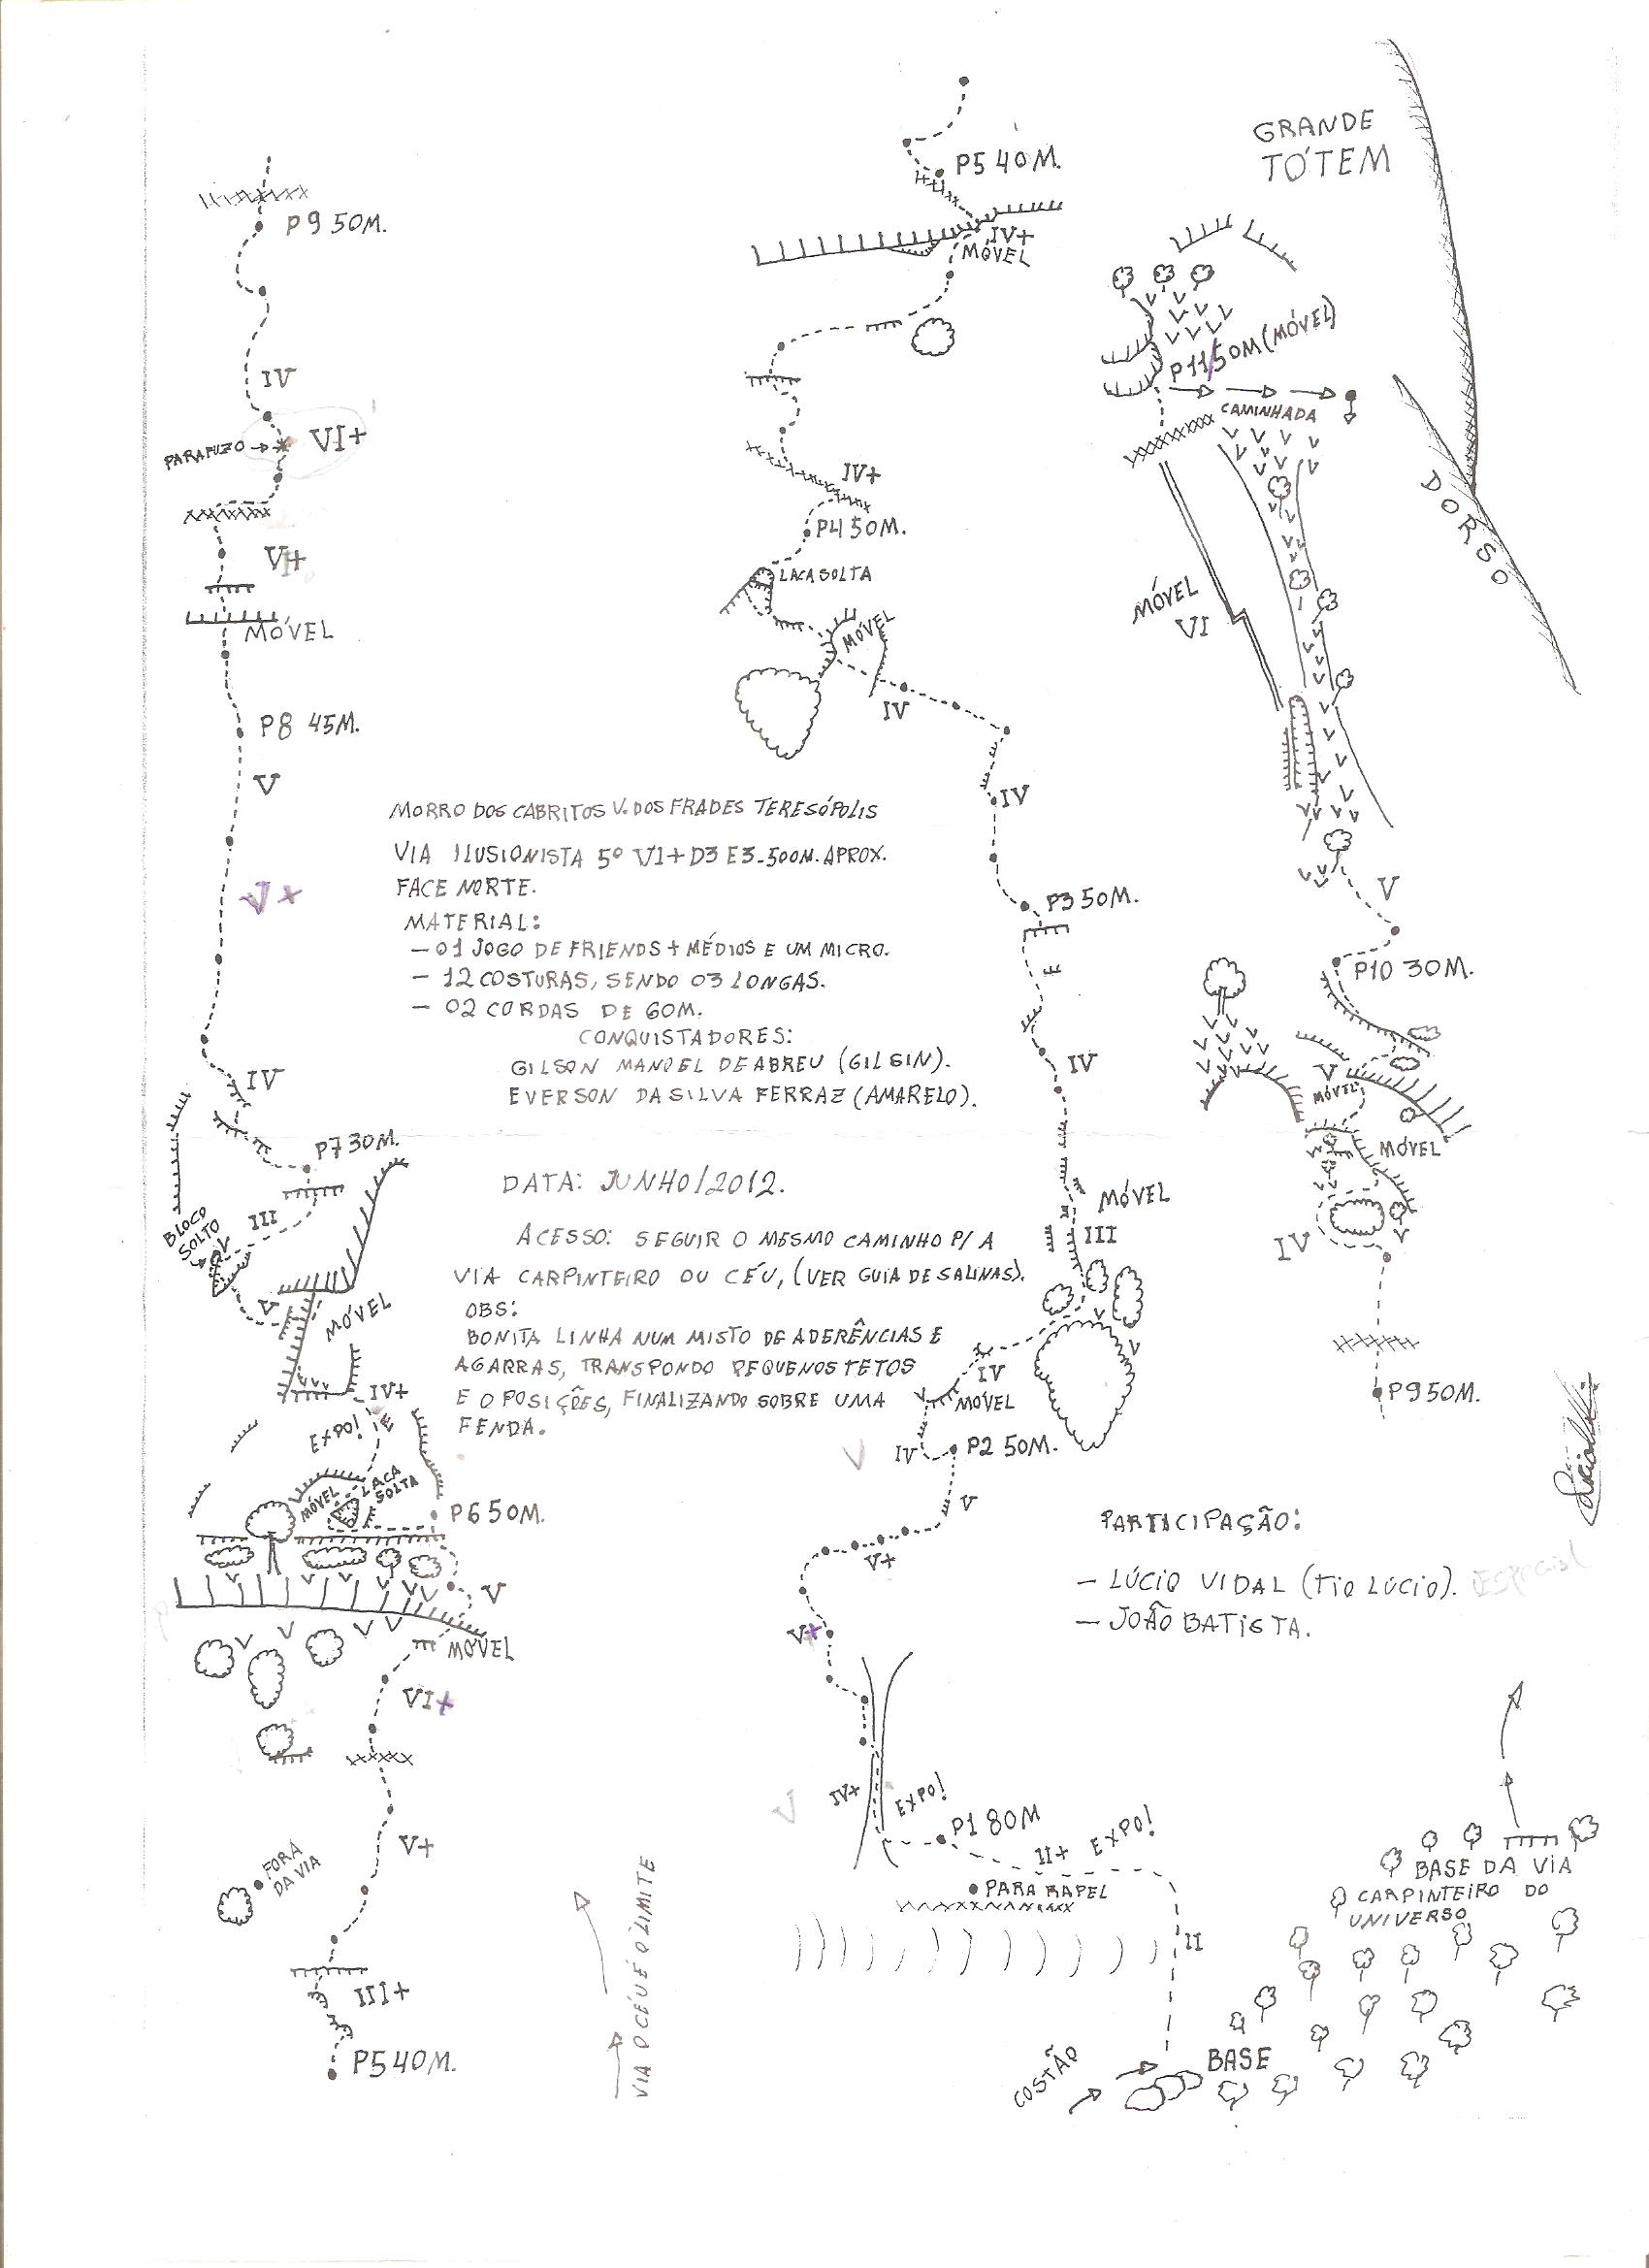 P5 40M.
IV+
MÓVEL
IV+
P4 50M.
LACA SOLTA
MÓVEL
IV
IV
P3 50M.
IV
MÓVEL
III
IV
MÓVEL
IV
P2 50M.
V
V
V+
V+
IV+
EXPO!
V
P1 80M
II+ EXPO!
PARA RAPEL
II
COSTÃO
BASE
GRANDE
TÓTEM
P11 50M (MÓVEL)
CAMINHADA
DORSO
MÓVEL
VI
V
P10 30M.
V
MÓVEL
MÓVEL
IV
P9 50M.
P9 50M.
IV
PARAFUZO
VI+
V+
MÓVEL
P8 45M.
V
V+
IV
P7 30M.
III
BLOCO
SOLTO
V
MÓVEL
IV+
EXPO!
MÓVEL
LACA
SOLTA
P6 50M.
V
MÓVEL
VI+
V+
FORA
DA VIA
III+
P5 40M.
MORRO DOS CABRITOS V. DOS FRADES TERESÓPOLIS
VIA ILUSIONISTA 5º VI+ D3 E3-500M. APROX.
FACE NORTE.
MATERIAL:
- 01 JOGO DE FRIENDS + MÉDIOS E UM MICRO.
- 12 COSTURAS, SENDO 03 LONGAS.
- 02 CORDAS DE 60M.
CONQUISTADORES:
GILSON MANOEL DE ABREU (GILSIN).
EVERSON DA SILVA FERRAZ (AMARELO).
DATA: JUNHO/2012.
ACESSO: SEGUIR O MESMO CAMINHO P/ A
VIA CARPINTEIRO OU CÉU, (VER GUIA DE SALINAS).
OBS:
BONITA LINHA NUM MISTO DE ADERÊNCIAS E
AGARRAS, TRANSPONDO PEQUENOS TETOS
E OPOSIÇÕES, FINALIZANDO SOBRE UMA
FENDA.
PARTICIPAÇÃO:
- LÚCIO VIDAL (TIO LÚCIO). Especial
- JOÃO BATISTA.
BASE DA VIA
CARPINTEIRO DO
UNIVERSO
VIA O CÉU É O LIMITE